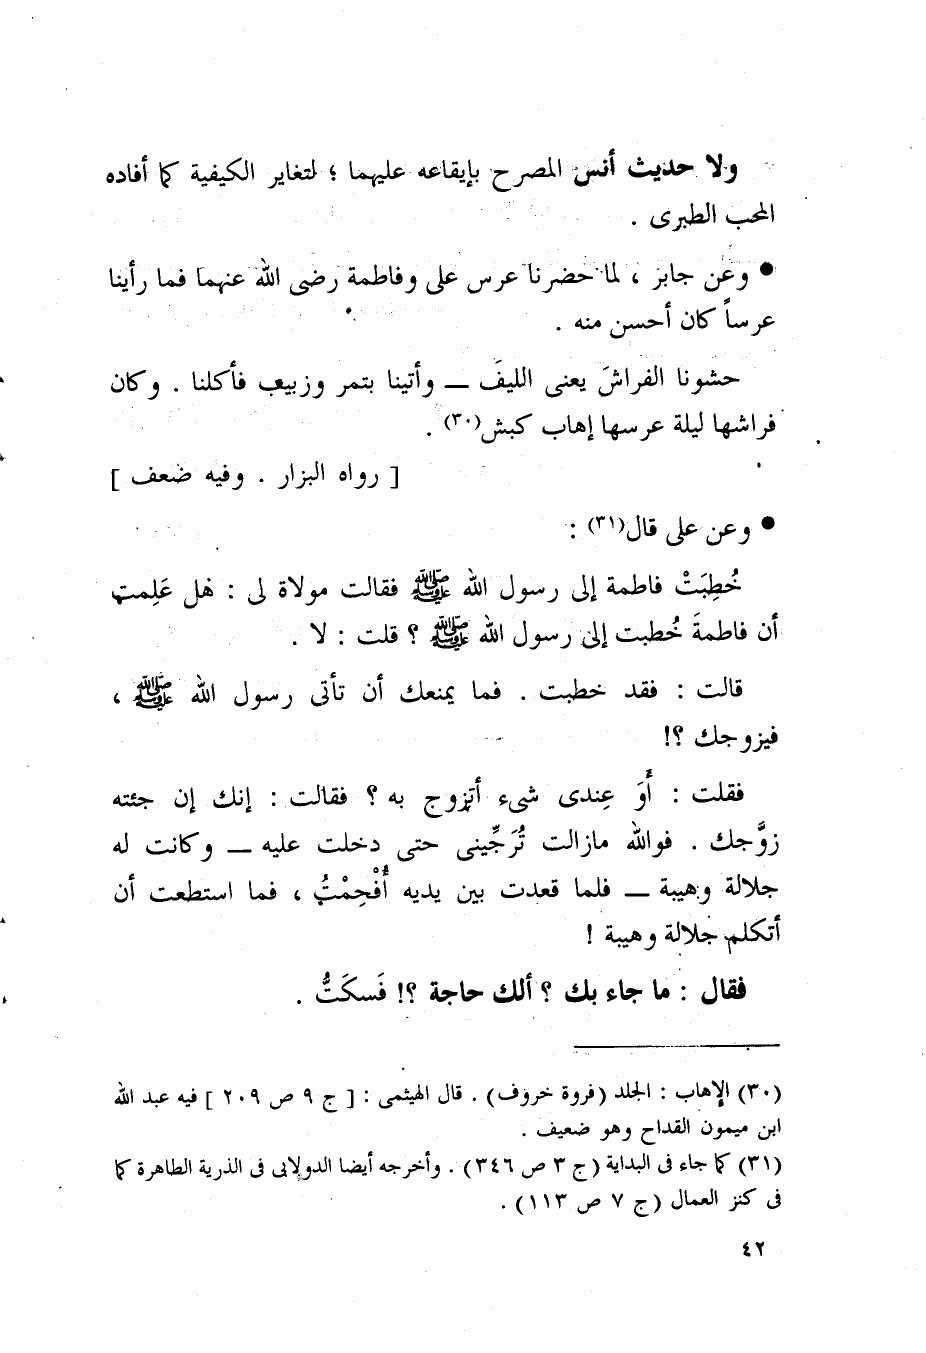 ولا حديث أنس المصرح بإيقاعه عليهما ؛ لتغاير الكيفية كما أفاده
المحب الطبرى .
● وعن جابر ، لما حضرنا عرس على وفاطمة رضى الله عنهما فما رأينا
عرساً كان أحسن منه .
حشونا الفراشَ يعنى الليفَ ــ وأتينا بتمر وزبيب فأكلنا . وكان
فراشها ليلة عرسها إهاب كبش(٣٠) .
[ رواه البزار . وفيه ضعف ]
● وعن على قال(٣١) :
خُطِبَتْ فاطمة إلى رسول الله ﷺ فقالت مولاة لى : هل عَلِمت
أن فاطمةَ خُطبت إلى رسول الله ﷺ ؟ قلت : لا .
قالت : فقد خطبت . فما يمنعك أن تأتى رسول الله ﷺ ،
فيزوجك ؟!
فقلت : أَوَ عِندى شىء أتزوج به ؟ فقالت : إنك إن جئته
زوَّجك . فوالله مازالت تُرَجِّينى حتى دخلت عليه ــ وكانت له
جلالة وهيبة ــ فلما قعدت بين يديه أُفْحِمْتُ ، فما استطعت أن
أتكلم جلالة وهيبة !
فقال : ما جاء بك ؟ ألك حاجة ؟! فَسكَتُّ .
(٣٠) الإهاب : الجلد (فروة خروف) . قال الهيثمى : [ ج ٩ ص ٢٠٩ ] فيه عبد الله
ابن ميمون القداح وهو ضعيف .
(٣١) كما جاء فى البداية (ج ٣ ص ٣٤٦) . وأخرجه أيضا الدولابى فى الذرية الطاهرة كما
فى كنز العمال (ج ٧ ص ١١٣) .
٤٢